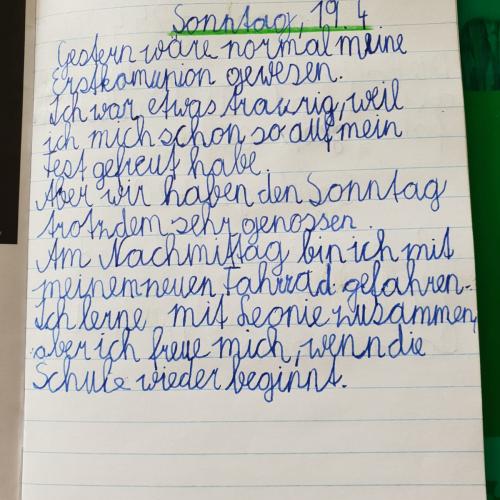 Sonntag, 19. 4
Gestern wäre normal meine
Erstkomunion gewesen.
Ich war etwas traurig, weil
ich mich schon so auf mein
Fest gefreut habe.
Aber wir haben den Sonntag
trotzdem sehr genossen.
Am Nachmittag bin ich mit
meinem neuen Fahrrad gefahren.
Ich lerne mit Leonie zusammen,
aber ich freue mich, wenn die
Schule wieder beginnt.